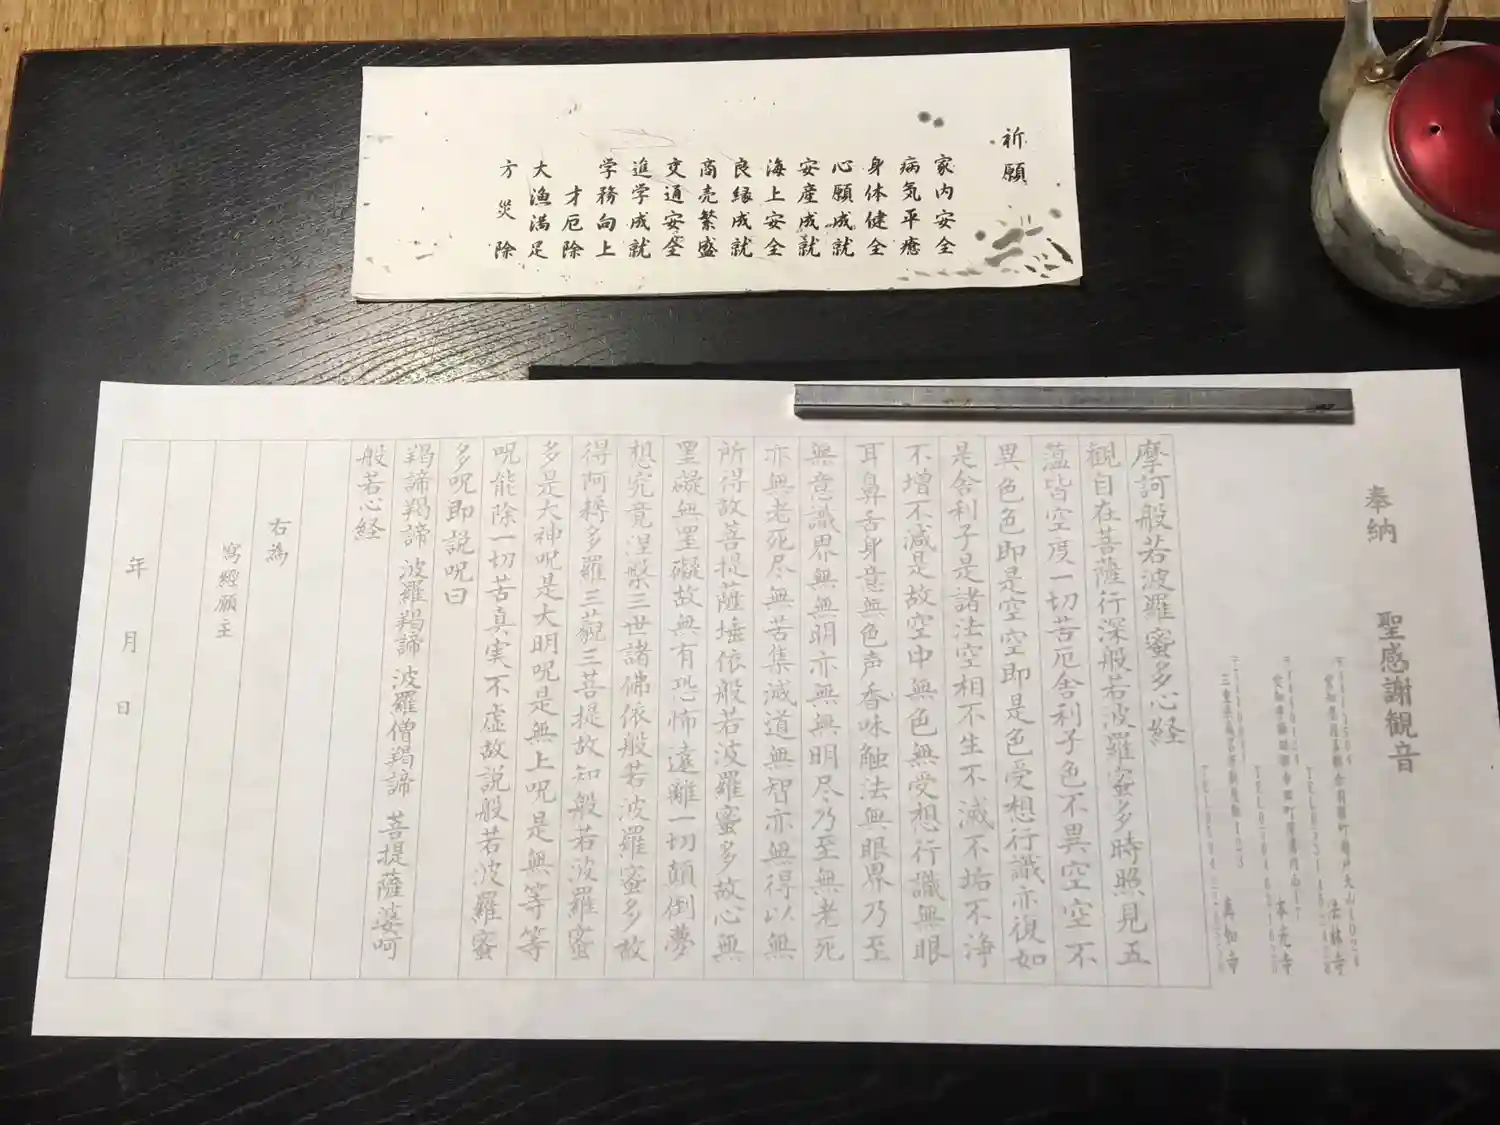 祈願
家内安全
病気平癒
身体健全
心願成就
安産成就
海上安全
良縁成就
商売繁盛
交通安全
進学成就
学務向上
才厄除
大漁満足
方災除
奉納 聖感謝観音
法林寺
本光寺
真如寺
摩訶般若波羅蜜多心経
観自在菩薩行深般若波羅蜜多時照見五
蘊皆空度一切苦厄舎利子色不異空空不
異色色即是空空即是色受想行識亦復如
是舎利子是諸法空相不生不滅不垢不浄
不増不減是故空中無色無受想行識無眼
耳鼻舌身意無色声香味触法無眼界乃至
無意識界無無明亦無無明尽乃至無老死
亦無老死尽無苦集滅道無智亦無得以無
所得故菩提薩埵依般若波羅蜜多故心無
罣礙無罣礙故無有恐怖遠離一切顛倒夢
想究竟涅槃三世諸佛依般若波羅蜜多故
得阿耨多羅三藐三菩提故知般若波羅蜜
多是大神呪是大明呪是無上呪是無等等
呪能除一切苦真実不虚故説般若波羅蜜
多呪即説呪曰
羯諦羯諦 波羅羯諦 波羅僧羯諦 菩提薩婆訶
般若心経
右為
寫經願主
年 月 日